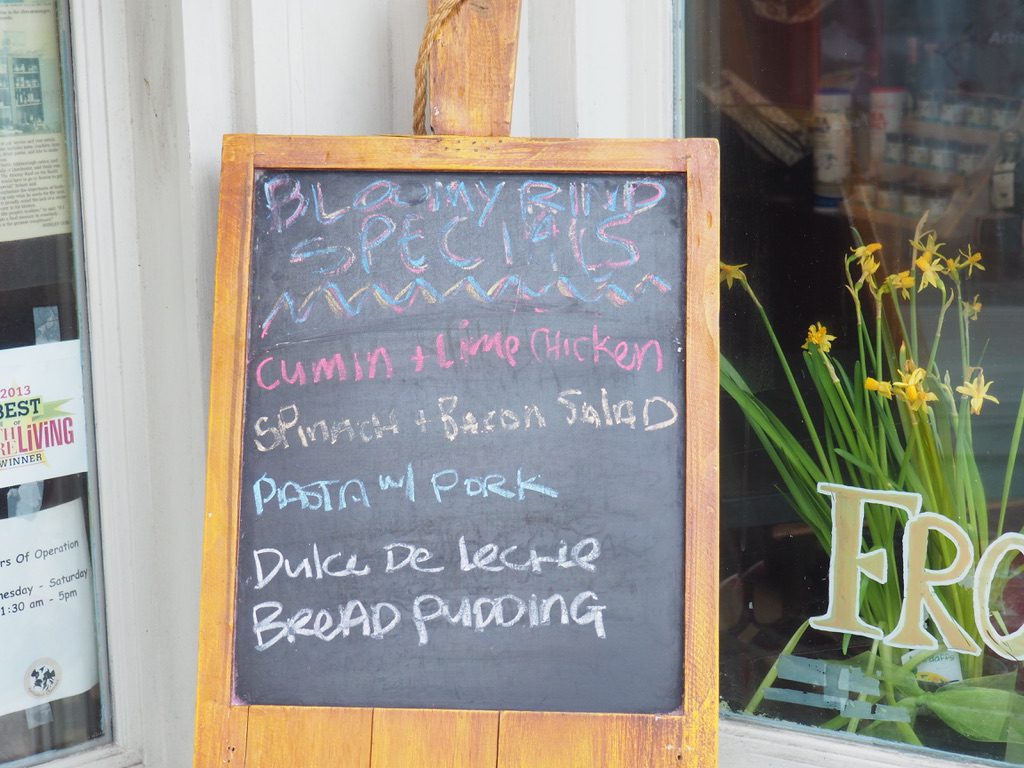 BLOOMY RIND
SPECIALS
CUMIN + LIME CHICKEN
SPINACH + BACON SALAD
PASTA w/ PORK
DULCE DE LECHE
BREAD PUDDING
2013
BEST
OF
LIVING
WINNER
rs Of Operation
nesday - Saturday
1:30 am - 5pm
FRO